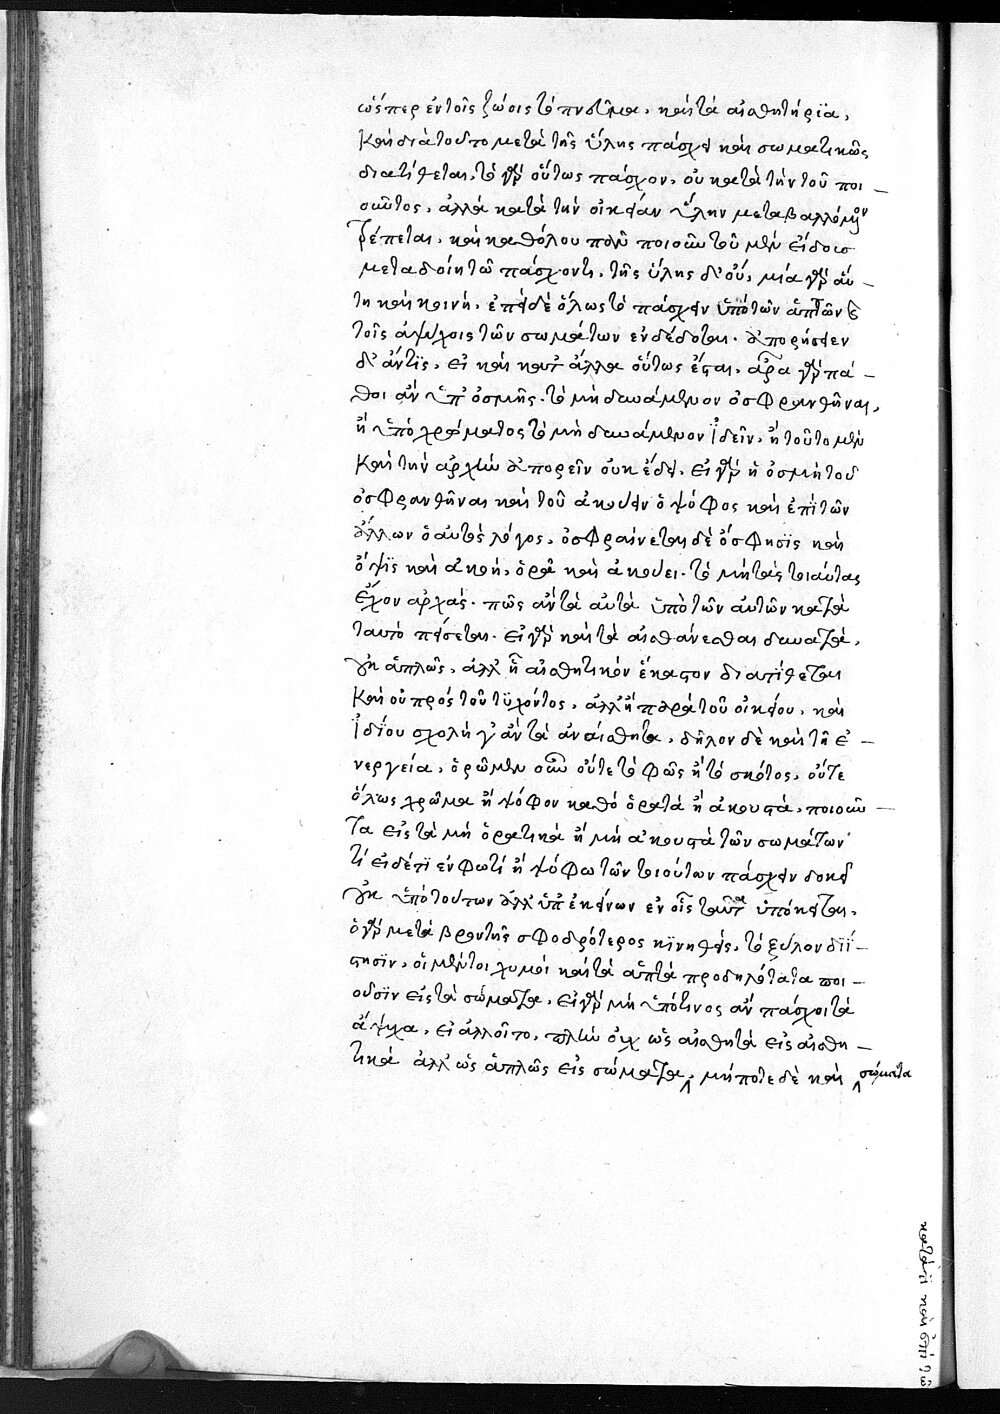 ὡσπερ ἐν τοῖς ζώοις τὸ πνεῦμα, καὶ τὰ αἰσθητήρϊα,
Καὶ διὰ τοῦτο μετὰ τῆς ὕλης πάσχει καὶ σωματικῶς
διατίθεται, τὸ γὰρ οὕτως πάσχον, οὐ κατὰ τὴν τοῦ ποι –
οῦντος, ἀλλὰ κατὰ τὴν οἰκείαν ὕλην μεταβαλλόμενον
τρέπεται, καὶ καθόλου πολὺ ποιοῦν τοῦ μὲν εἴδους
μεταδοίη τῶ πάσχοντι, τῆς ὕλης δ' οὔ, μία γὰρ αὕ –
τη καὶ κοινή, ἐπεὶ δὲ ὅλως τὸ πάσχειν ὑπὸ τῶν ἁπτῶν
τοῖς ἀψύχοις τῶν σωμάτων ἐνδέδοται. ἀπορήσειεν
δ' ἄν τϊς, εἰ καὶ κατ' ἄλλα οὕτως ἔσται, ἆρα γὰρ πά –
θοι ἂν ὑπ' ὀσμῆς. τὸ μὴ δυνάμενον ὀσφρανθῆναι,
ἢ ὑπὸ χρώματος τὸ μὴ δυνάμενον ἰδεῖν, ἢ τοῦτο μὲν
Καὶ τὴν ἀρχὴν ἀπορεῖν οὐκ ἔδει, εἰ γὰρ ἡ ὀσμὴ τοῦ
ὀσφρανθῆναι καὶ τοῦ ἀκούειν ὁ ψόφος καὶ ἐπὶ τῶν
ἄλλων ὁ αὐτὸς λόγος, ὀσφραίνεται δὲ ὄσφρησϊς καὶ
ὄψϊς καὶ ἀκοή, ὁρᾶ καὶ ἀκούει. τὸ μὴ τὰς τοιαύτας
ἔχον ἀρχάς. πῶς ἂν τὰ αὐτὰ ὑπὸ τῶν αὐτῶν κατὰ
ταυτὸ πείσεται. εἰ γὰρ καὶ τὰ αἰσθάνεσθαι δυνατὰ,
οὐκ ἁπλῶς, ἀλλ' ᾗ αἰσθητικὸν ἕκαστον διατίθεται
Καὶ οὐ πρὸς τοῦ τϋχόντος, ἀλλ' ἢ παρὰ τοῦ οἰκείου, καὶ
ἰδίου σχολῇ γ' ἂν τὰ ἀναίσθητα, δῆλον δὲ καὶ τῆ ἐ –
νεργεία, ὁρῶμεν οὖν οὔτε τὸ φῶς ἢ τὸ σκότος, οὔτε
ὅλως χρῶμα ἢ ψόφον καθὸ ὁρατὰ ἢ ἀκουστὰ, ποιοῦν –
τα εἰς τὰ μὴ ὁρατικὰ ἢ μὴ ἀκουστὰ τῶν σωμάτων
τί εἰ δέ τϊ ἐν φωτὶ ἢ ψόφω τῶν τοιούτων πάσχειν δοκεῖ
οὐκ ὑπὸ τούτων ἀλλ' ὑπ' ἐκείνων ἐν οἷς ταῦτα ὑπόκειται,
ὁ γὰρ μετὰ βροντῆς σφοδρότερος κϊνηθεὶς, τὸ ξύλον διΐ –
στησϊν, οἱ μέντοι χυμοὶ καὶ τὰ ἁπτὰ προδηλότατα ποι –
οῦσϊν εἰς τὰ σώματα, εἰ γὰρ μὴ ὑπό τινος ἂν πάσχοι τὰ
ἄψυχα, εἰ ἀλλοῖτο, πλὴν οὐχ ὡς αἰσθητὰ εἰς αἰσθη –
τικὰ ἀλλ' ὡς ἁπλῶς εἰς σώματα, μήποτε δὲ καὶ σώματα